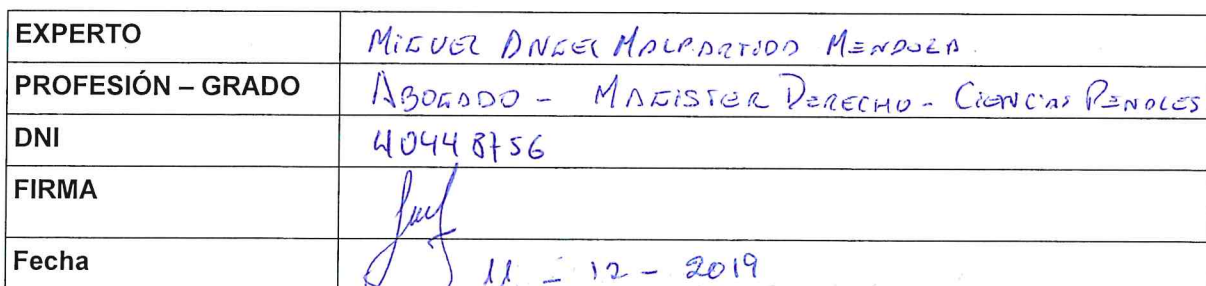 EXPERTO MIGUEL ANGEL MALPARTIDA MENDOZA
PROFESIÓN – GRADO ABOGADO - MAGISTER DERECHO - CIENCIAS PENALES
DNI 40448756
FIRMA
Fecha 11 - 12 - 2019